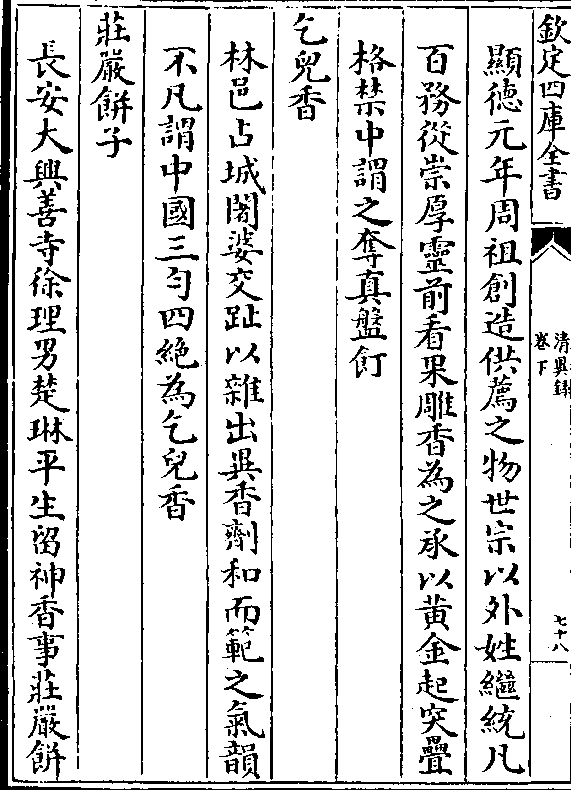 欽定四庫全書
清異錄
卷下
七十八
顯德元年周祖創造供薦之物世宗以外姓繼統凡
百務從崇厚靈前看果雕香為之承以黃金起突疊
格禁中謂之奪真盤飣
乞兒香
林邑占城闍婆交趾以雜出異香劑和而範之氣韻
不凡謂中國三勻四絶為乞兒香
莊嚴餅子
長安大興善寺徐理男楚琳平生留神香事莊嚴餅